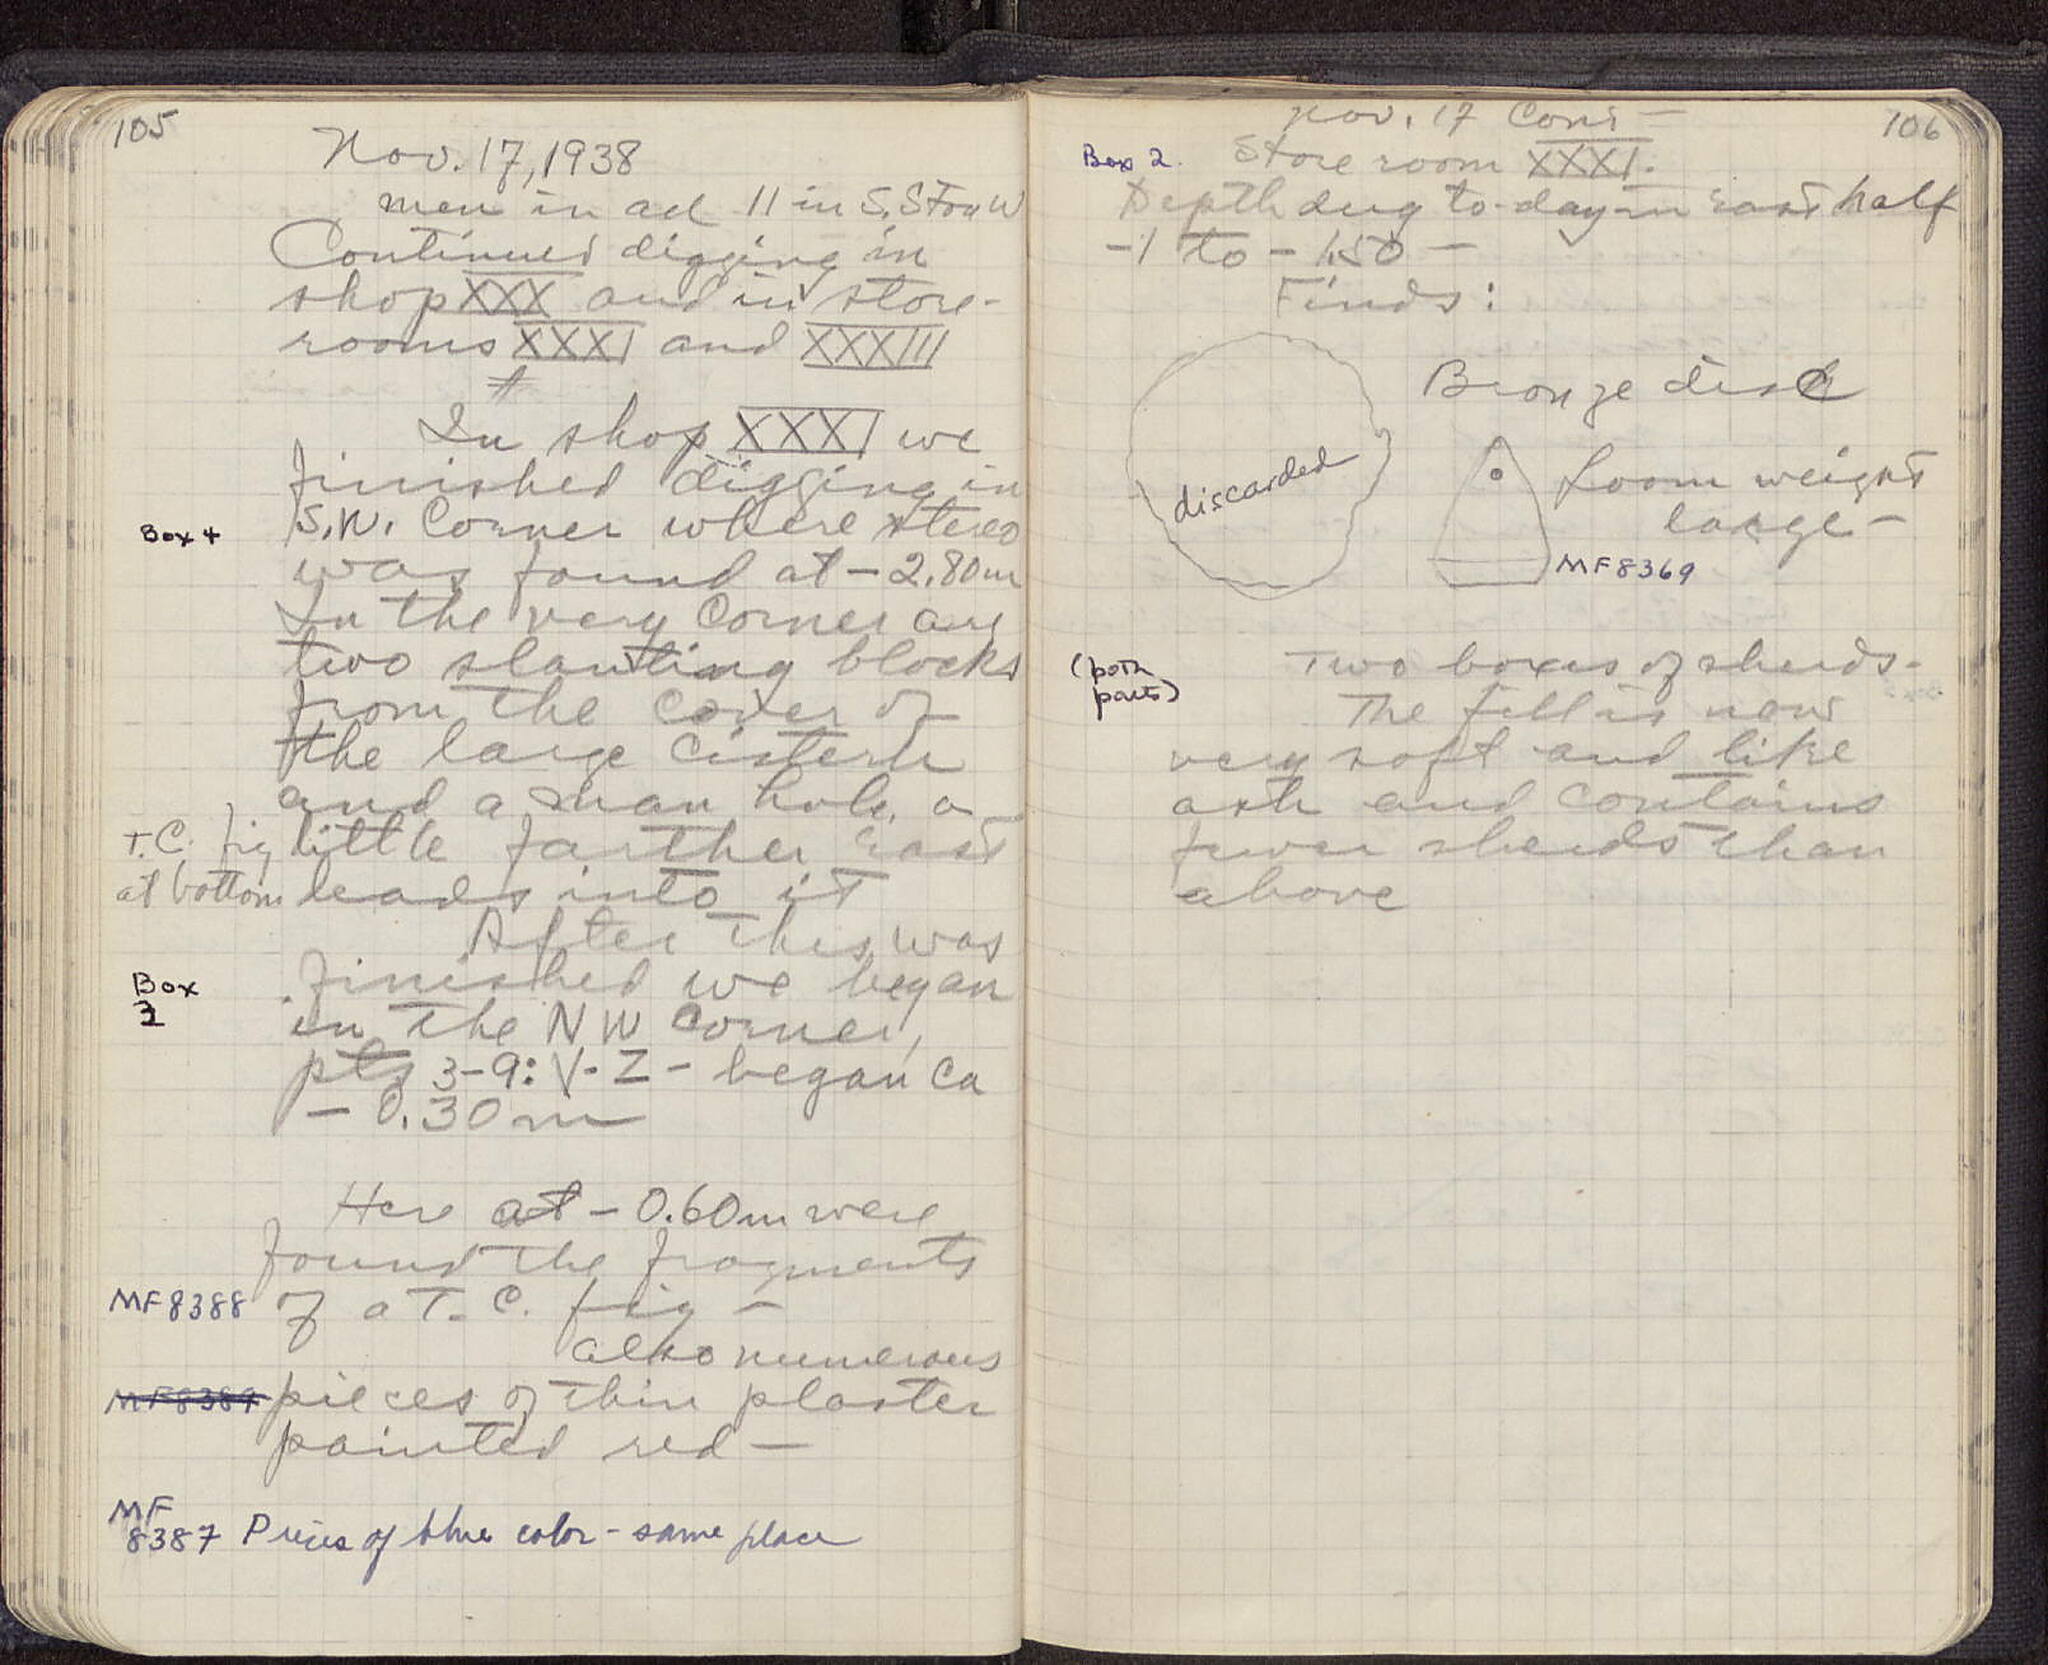 105
Nov. 17, 1938
men in ad 11 in S. Stoa W
Continued digging in
shop XXX and in store-
rooms XXXI and XXXIII
In shop XXXI we
finished digging in
Box 4 S.W. Corner where stereo
was found at - 2.80m
In the very corner are
two slanting blocks
from the cover of
the large cistern
and a man hole, a
T.C. fig little farther East
at bottom leads into it
After this was
Box finished we began
3 in the NW corner,
pts 3-9: V-Z - began ca
- 0.30m
Here at - 0.60m were
found the fragments
MF8388 of a T.C. fig -
also numerous
MF8387 pieces of thin plaster
painted red -
MF
8387 Pieces of blue color - same place
106
Nov. 17 Cont -
Box 2. Store room XXXI.
Depth dug to-day in East half
-1 to - 1.50 -
Finds:
Bronze disc
discarded
Loom weight
large -
MF8369
(both parts) Two boxes of sherds.
The fill is now
very soft and like
ash and contains
fewer sherds than
above